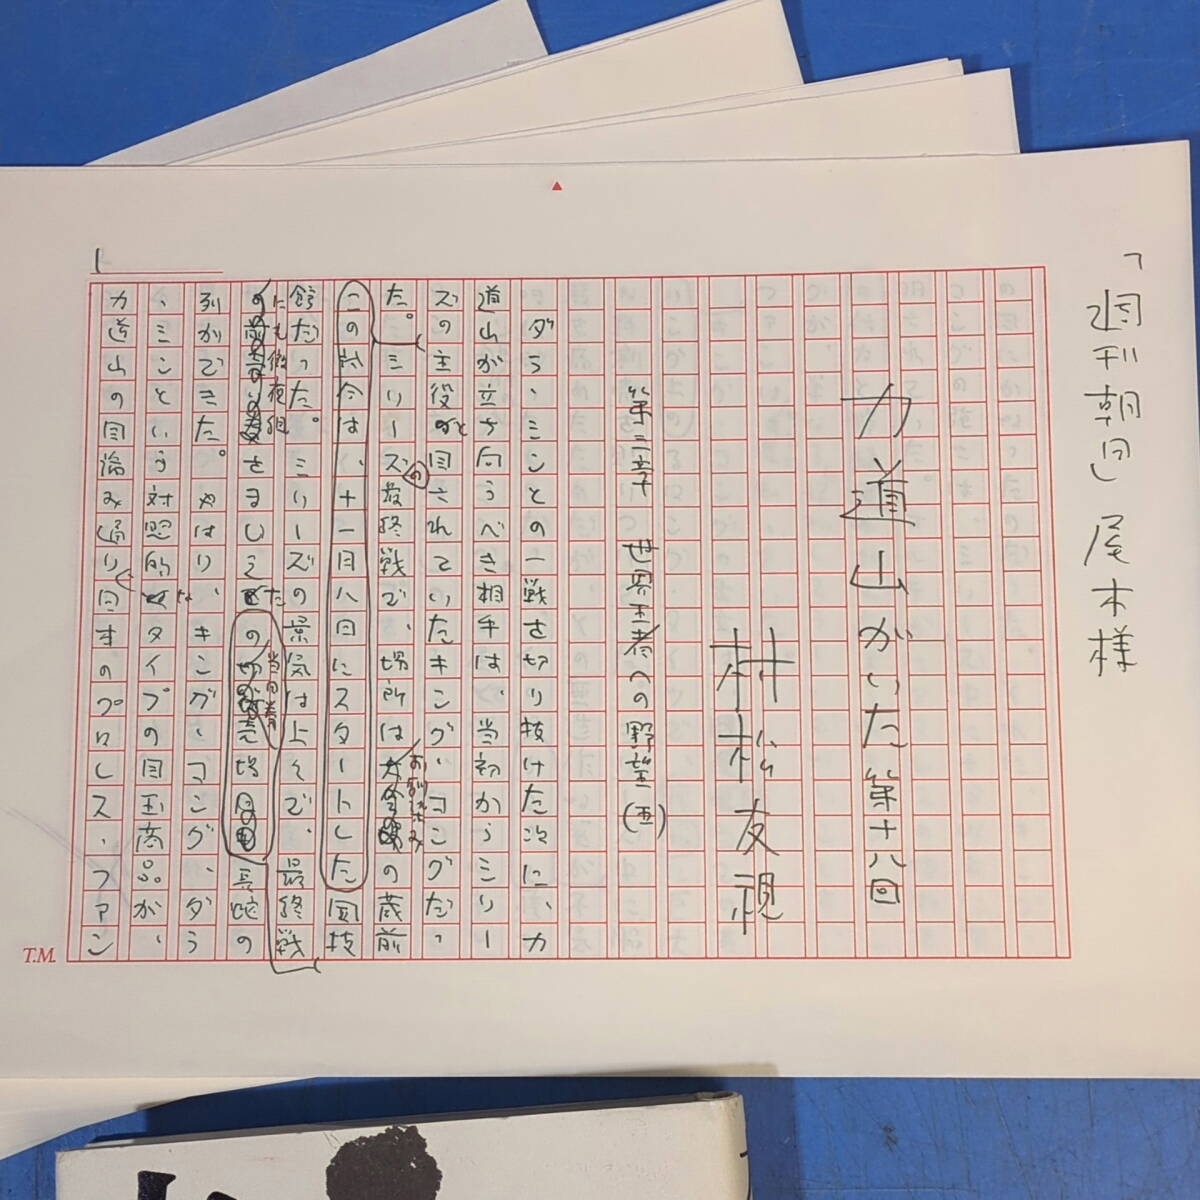 「週刊朝日」尾木様
力道山がいた 第十八回
村松友視
第三章 世界王者への野望(五)
ダラ・シンとの一戦を切り抜けた次に、力
道山が立ち向うべき相手は、当初からシリー
ズの主役と目されていたキング・コングだっ
た。
シリーズの最終戦で、場所はお馴染みの蔵前
この試合は、十一月八日にスタートした国技
館だった。シリーズの景気は上々で、最終戦
にも徹夜組
さましえた
当日券
売場
長蛇の
列ができた。やはり、キング・コング、ダラ
・シンという対照的なタイプの目玉商品が、
力道山の目論み通り
日本のプロレス・ファン
1
T.M.